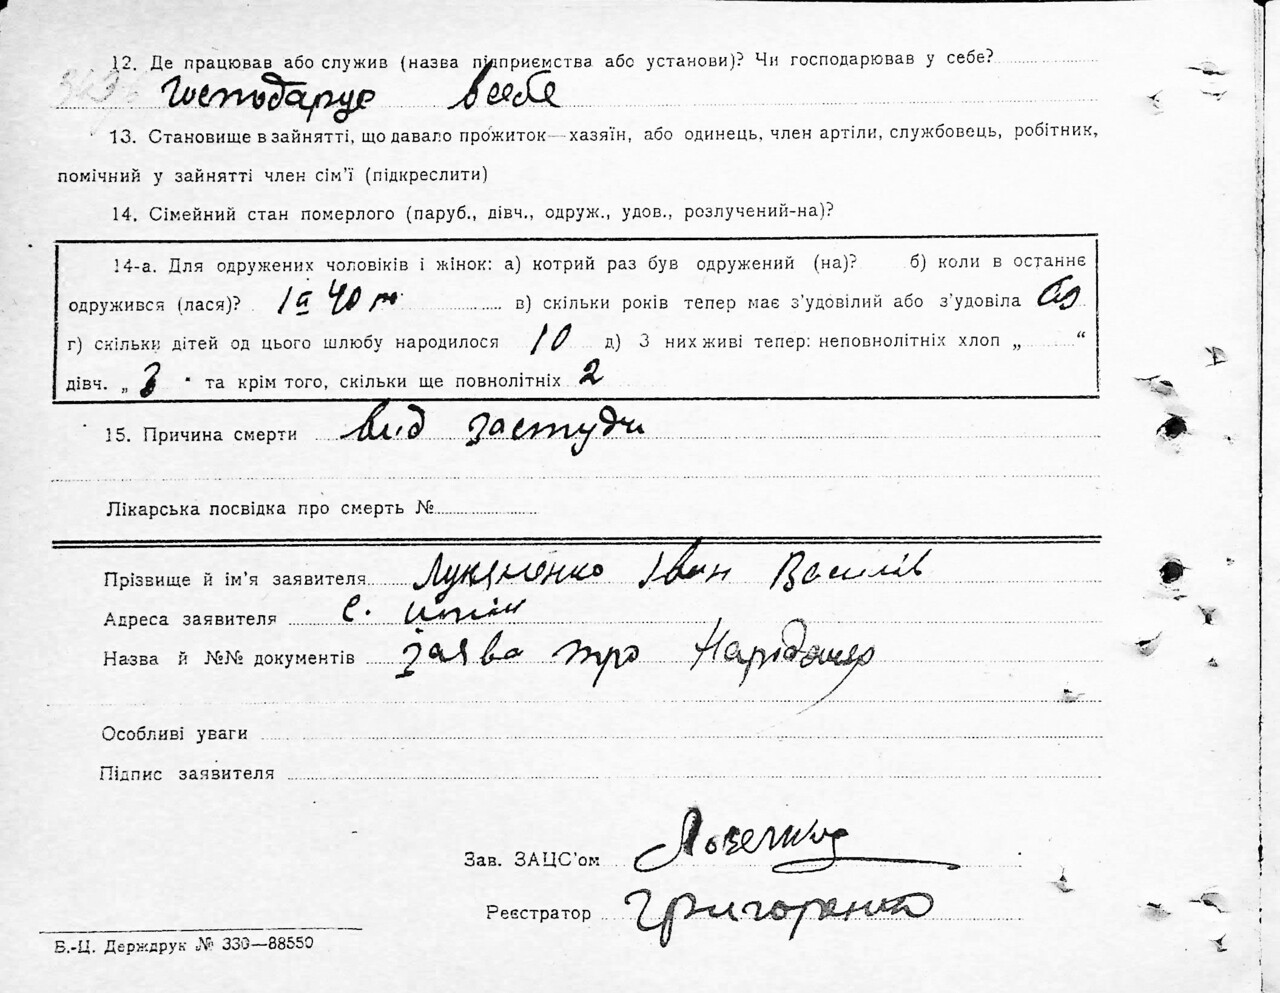 12. Де працював або служив (назва підприємства або установи)? Чи господарював у себе?
Господарує всебе
13. Становище в зайнятті, що давало прожиток—хазяїн, або одинець, член артіли, службовець, робітник,
помічний у зайнятті член сім'ї (підкреслити)
14. Сімейний стан померлого (паруб., дівч., одруж., удов., розлучений-на)?
14-а. Для одружених чоловіків і жінок: а) котрий раз був одружений (на)? б) коли в останнє
одружився (лася)? 1й 40 в) скільки років тепер має з'удовілий або з'удовіла
г) скільки дітей од цього шлюбу народилося 10 д) З них живі тепер: неповнолітніх хлоп „ “
дівч. „ 3 " та крім того, скільки ще повнолітніх 2
15. Причина смерти вид застуди
Лікарська посвідка про смерть №
Прізвище й ім'я заявителя Лукяненко Іван Василів
Адреса заявителя с.
Назва й №№ документів заява про
Особливі уваги
Підпис заявителя
Зав. ЗАЦС'ом
Реєстратор Григоренко
Б.-Ц. Держдрук № 330—88550